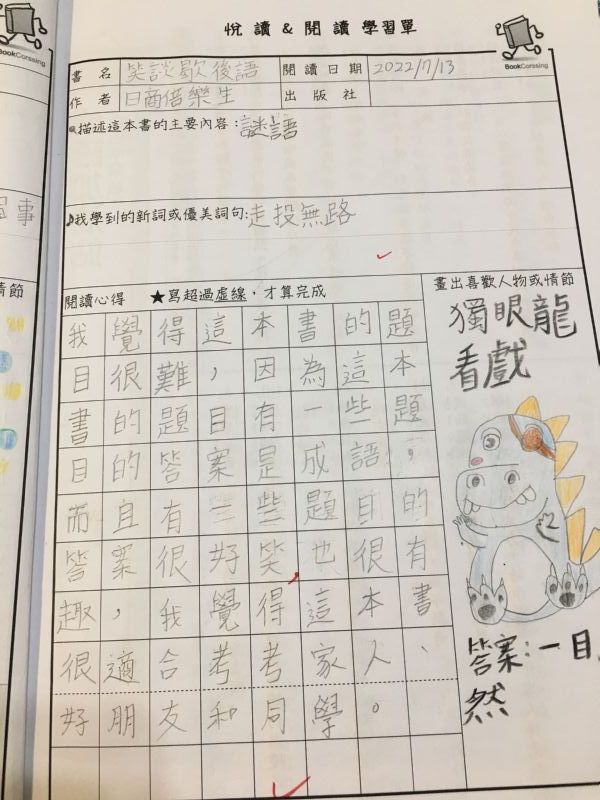 悅讀 & 閱讀 學習單
BookCorssing
BookCorssing
書名 笑談歇後語 閱讀日期 2022/7/13
作者 日商倍樂生 出版社
描述這本書的主要內容：謎語
我學到的新詞或優美詞句:走投無路
閱讀心得 ★寫超過虛線，才算完成
我覺得這本書的題
目很難，因為這本
書的題目有一些題
目的答案是成語，
而且有一些題目的
答案很好笑，也很有
趣，我覺得這本書
很適合考考家人、
好朋友和同學。
畫出喜歡人物或情節
獨眼龍
看戲
答案：一目
然
事
情節